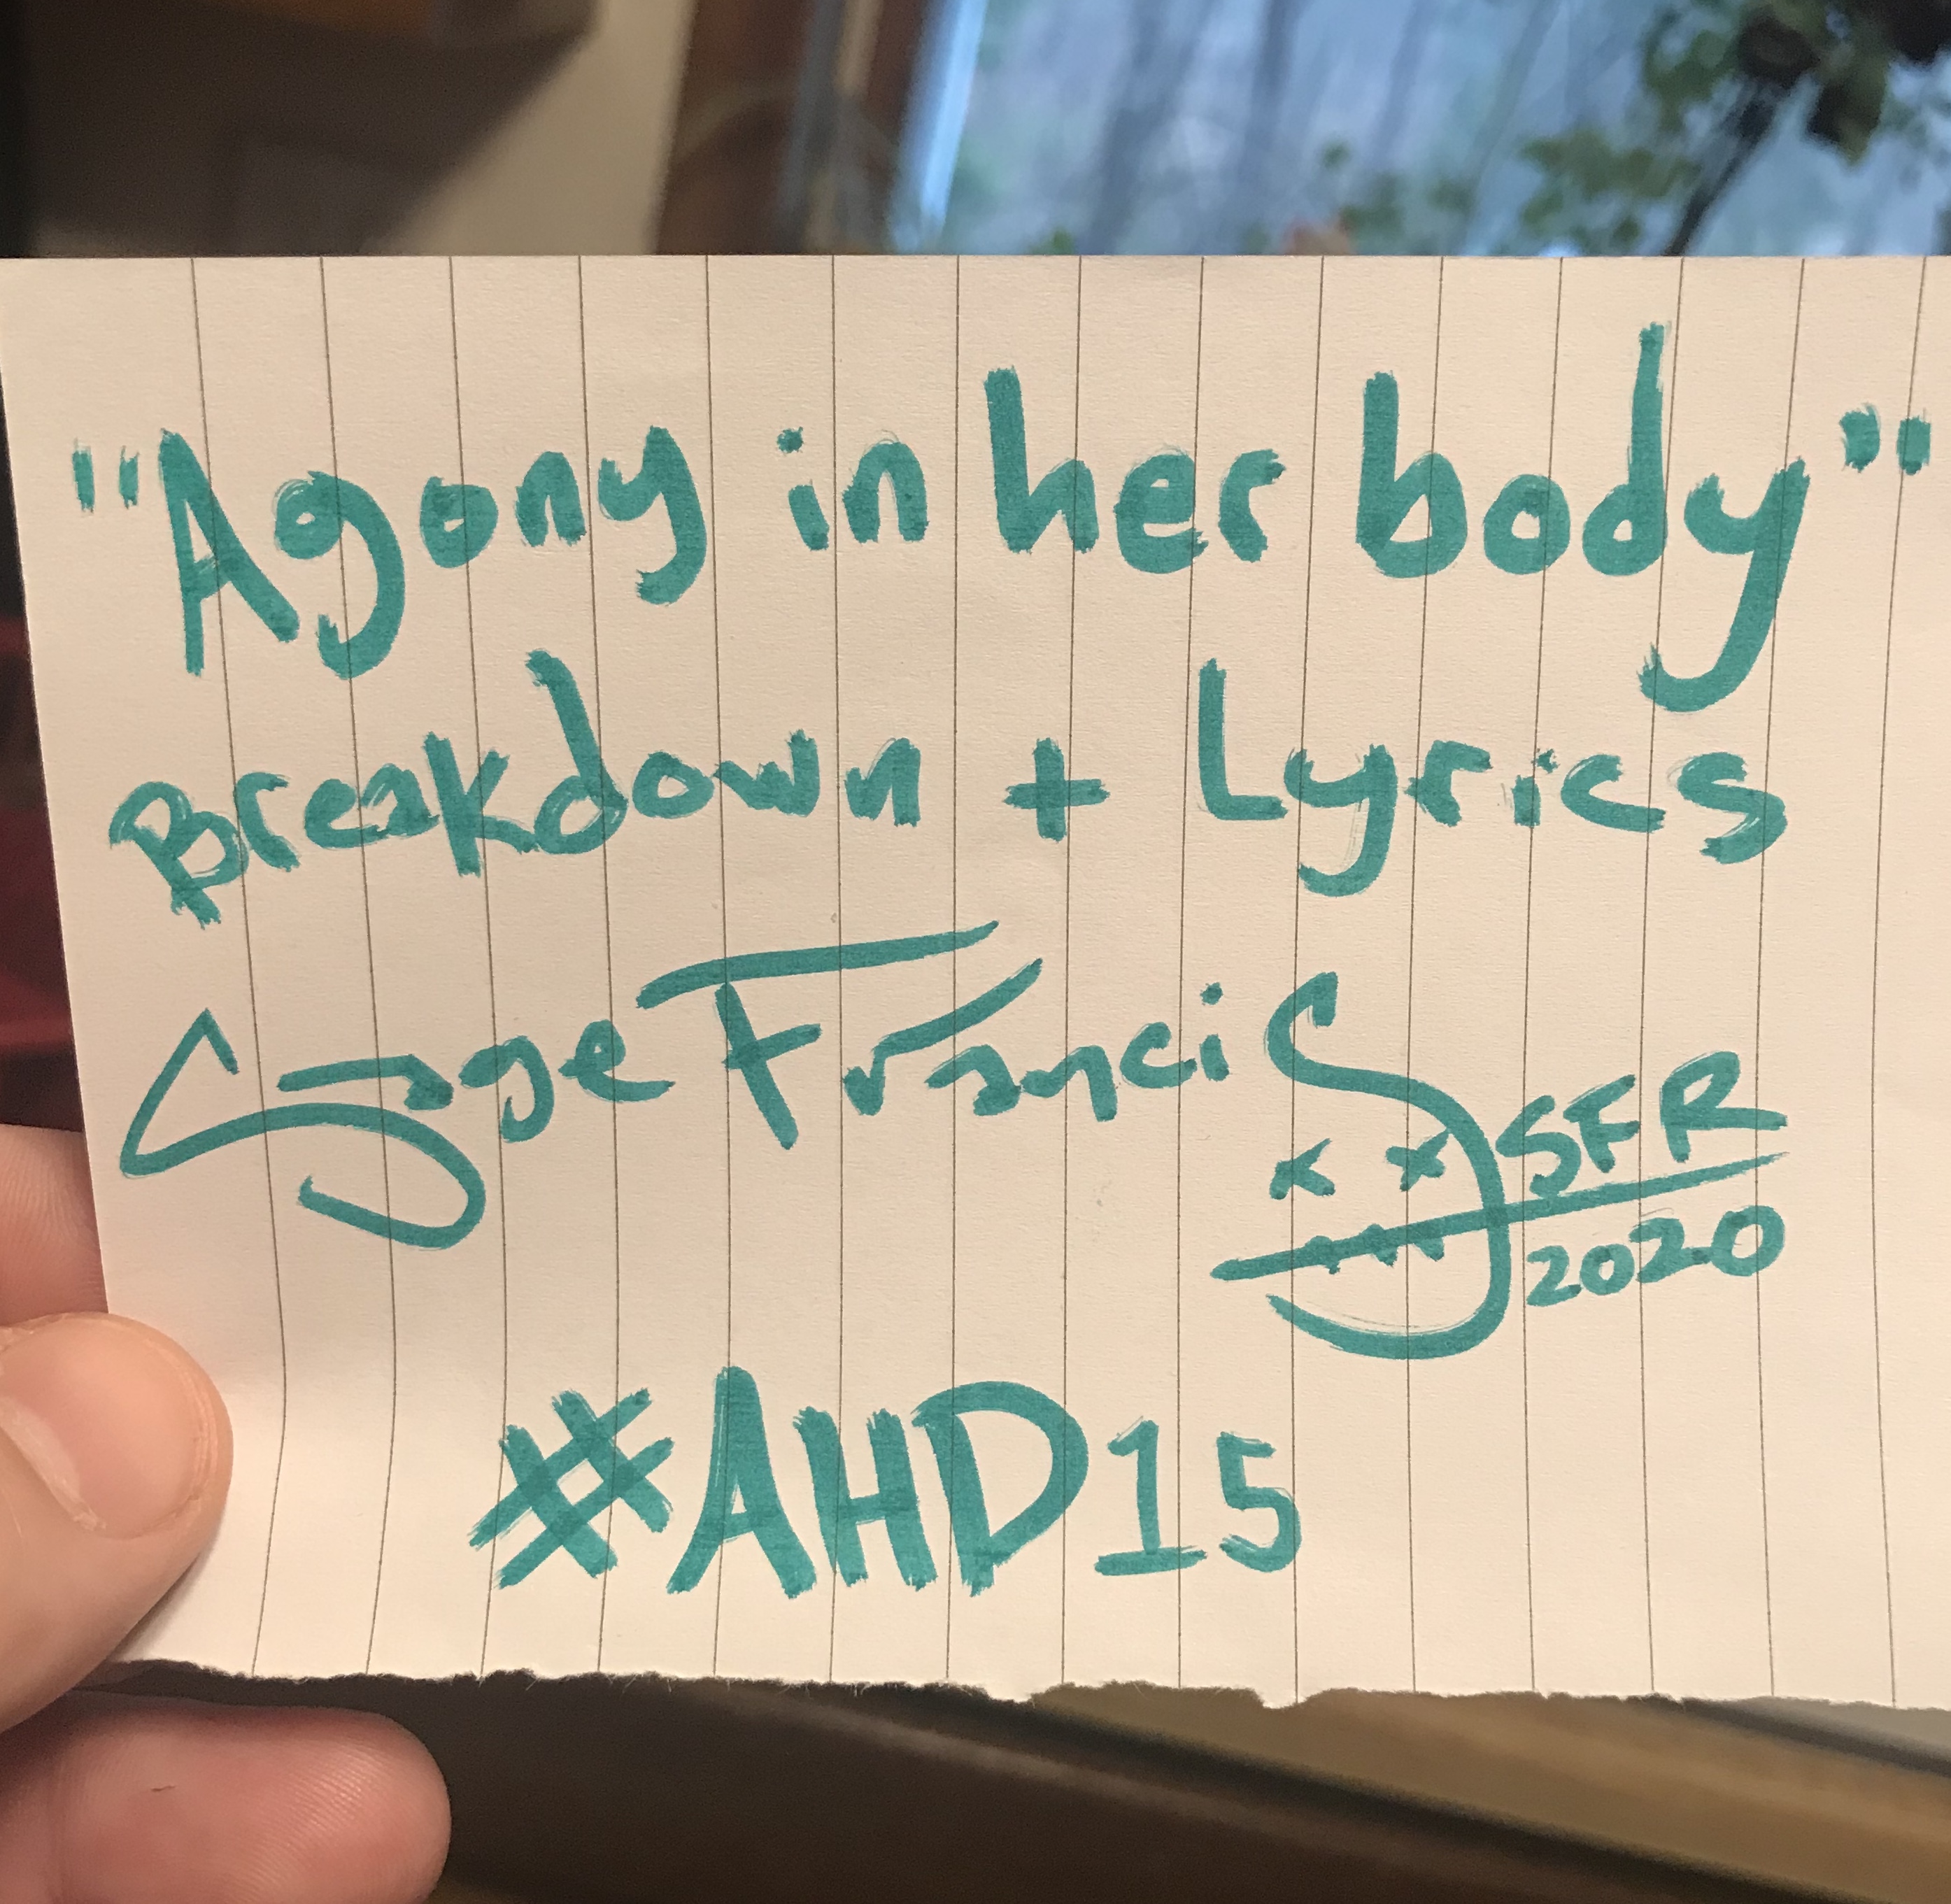 "Agony in her body"
Breakdown + Lyrics
Sage Francis
SFR
2020
#AHD15